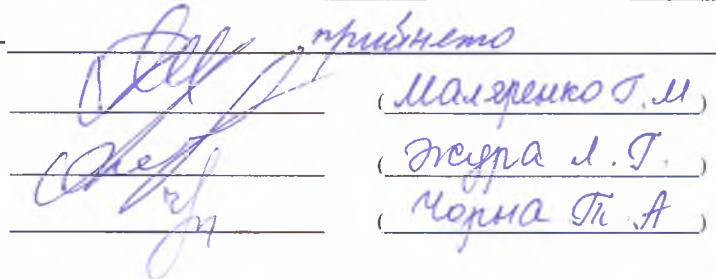 прийнято
(Маляренко Г. М)
(Жура Л. Г.)
(Чорна Т. А)